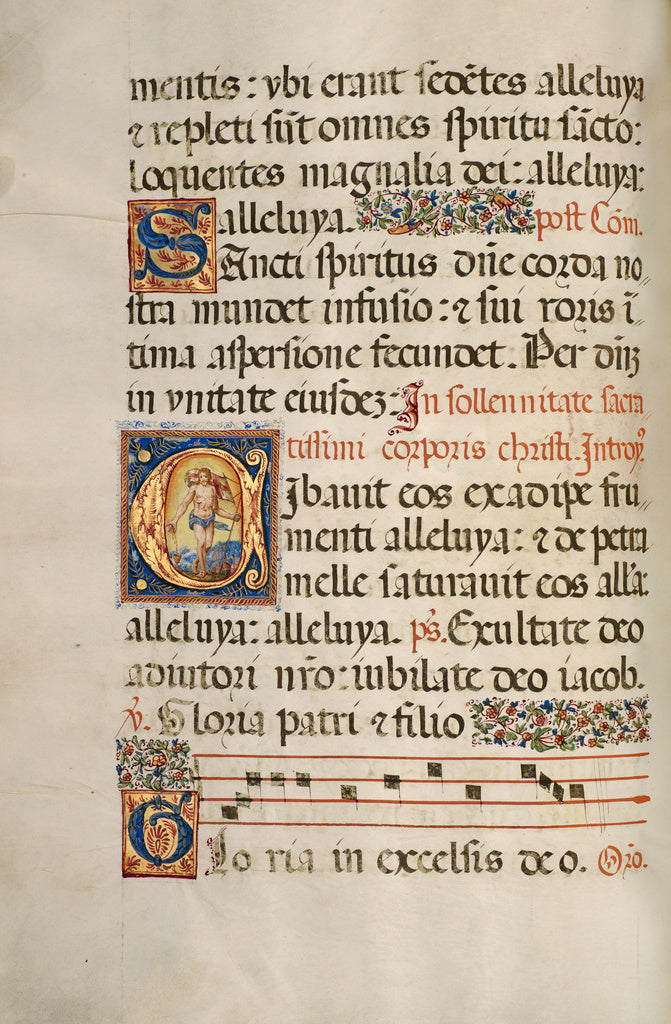 mentis: vbi erant sedētes alleluya
⁊ repleti sūt omnes spiritu sācto:
loquentes magnalia dei: alleluya:
alleluya. post Cōm.
SAncti spiritus dn̄e corda no-
stra mundet infusio: ⁊ sui roris ī-
tima aspersione fecundet. Per dn̄ꝫ
in vnitate eiusdeꝫ: In sollennitate sacra-
tissimi corporis christi. Introyꝰ
Cibauit eos ex adipe fru-
menti alleluya: ⁊ de petra
melle saturauit eos all'a:
alleluya: alleluya. p̄s. Exultate deo
adiutori nr̄o: iubilate deo iacob.
℣. Gloria patri ⁊ filio
GLo ria in excelsis deo. Orō.